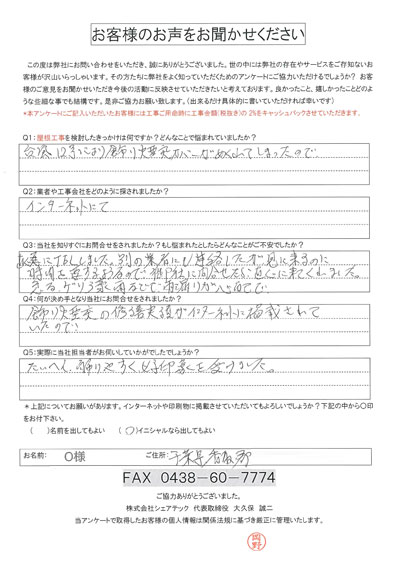 お客様のお声をお聞かせください
この度は弊社にお問い合わせをいただき、誠にありがとうございました。世の中には弊社の存在やサービスをご存知ないお
客様が沢山いらっしゃいます。その方たちに弊社をよく知っていただくためのアンケートにご協力いただけるでしょうか？ お客
様のご意見をお聞かせいただき今後の活動に反映させていただきたいと考えております。良かったこと、嬉しかったことどのよ
うな些細な事でも結構です。是非ご協力お願い致します。（出来るだけ具体的に書いていただければ幸いです）
*本アンケートにご記入いただいたお客様には工事ご用命時に工事金額（税抜き）の 2%をキャッシュバックさせていただきます。
Q1：屋根工事を検討したきっかけは何ですか？どんなことで悩まれていましたか？
台風12号により飾り 破風カバーがめくれてしまったので
Q2：業者や工事会社をどのように探されましたか？
インターネットにて
Q3：当社を知りすぐにお問合せをされましたか？もし悩まれたとしたらどんなことがご不安でしたか？
別の業者にも連絡したが見に来るのに
時間を要するようなので御社に問合せたら直ぐに来てくれました。
ゲリラ豪雨などで雨漏りが心配で
Q4：何が決め手となり当社にお問合せをされましたか？
飾り破風の修繕実績がインターネットに掲載されて
いたので
Q5：実際に当社担当者がお伺いしていかがでしたでしょうか？
たいへん、解りやすく、好印象を受けました。
＊上記についてお願いがあります。インターネットや印刷物に掲載させていただいてもよろしいでしょうか？下記の中から〇印
をお付下さい。
（　）名前を出してもよい　（〇）イニシャルなら出してもよい
お名前： O様 ご住所： 千葉県香取郡
FAX 0438－60－7774
ご協力ありがとうございました。
株式会社シェアテック 代表取締役 大久保 誠二
当アンケートで取得したお客様の個人情報は関係法規に基づき厳正に管理いたします。
岡野